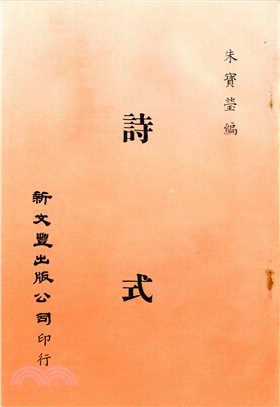 朱寶瑩編
詩式
新文豐出版公司印行